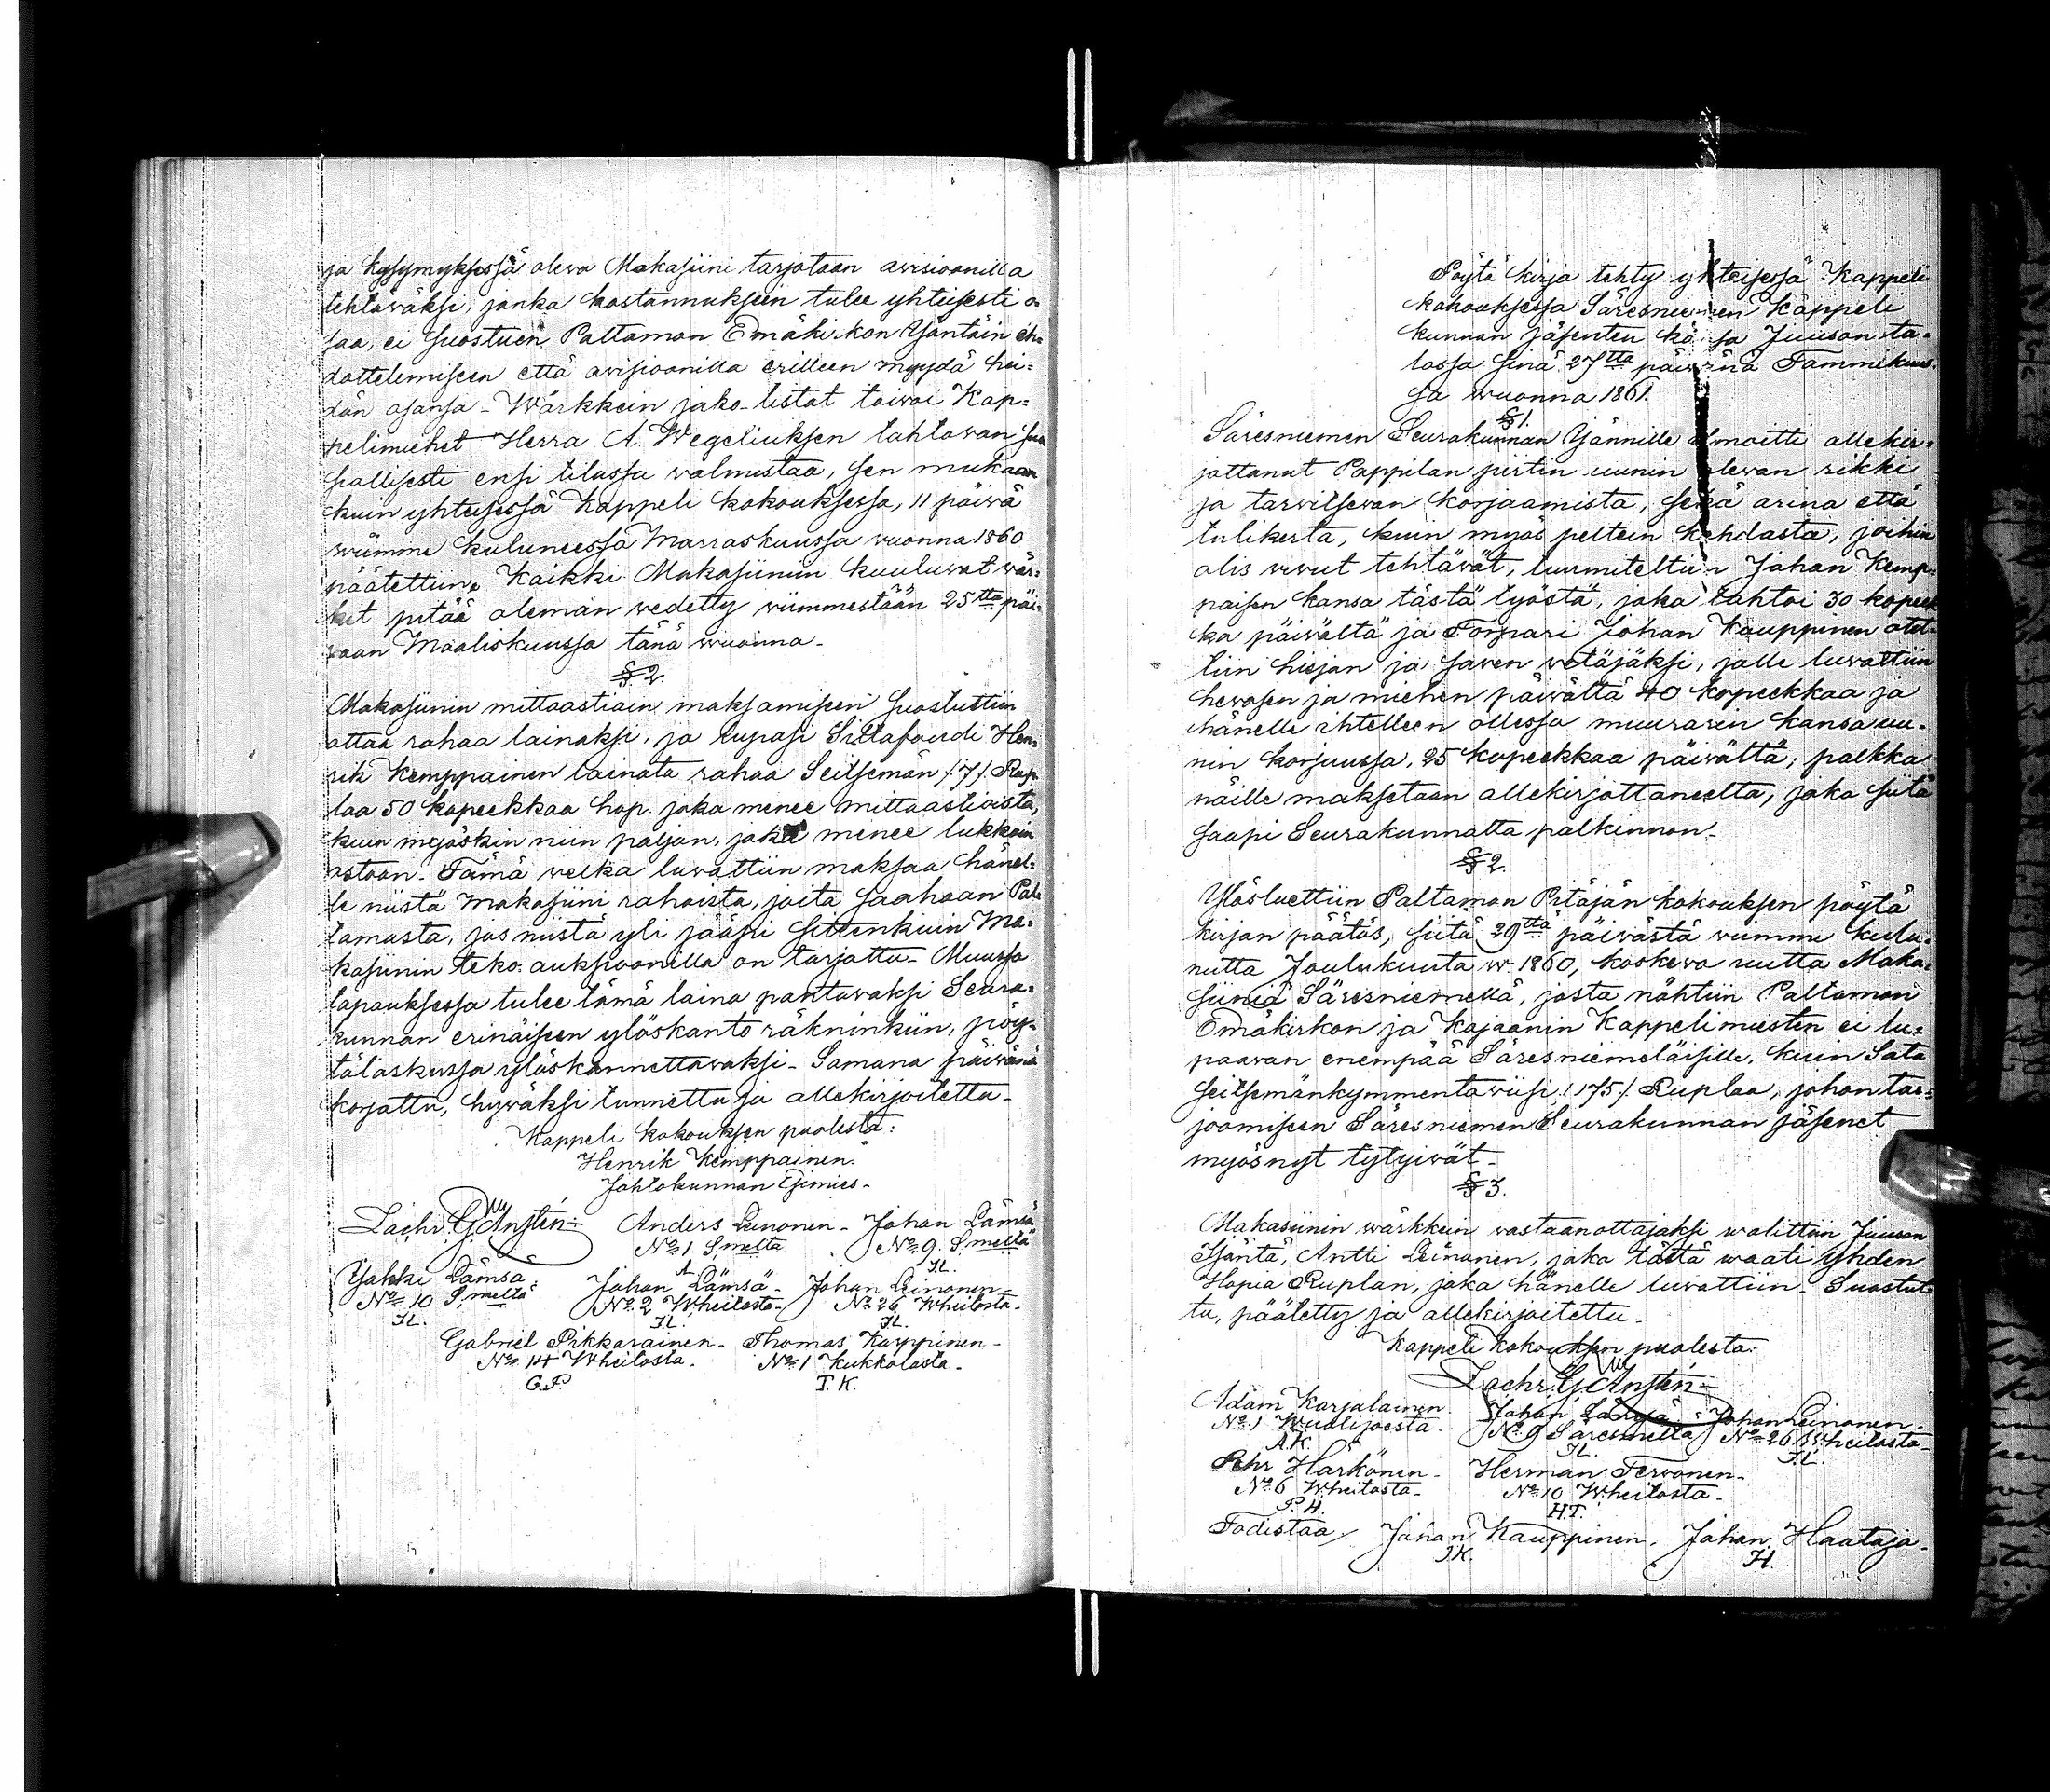 ja kysymyksesä olewa Makasiini tarjotaan avisioonilla
tehtäwäksi, jonka kostannukseen tulee yhteisesti o-
saa, ei suostuen Paltamon Emäkirkon Isäntäin eh-
dottelemiseen että avisioonilla erilleen myydä hei-
dän osansa - Wärkkein jako-listat toiwoi Kap-
pelimiehet Herra A. Wegeliuksen tahtowan suo
siallisesti ensi tilassa walmistaa, sen mukaan
kuin yhteisessä Kappeli kokouksessa, 11 päiwä
wiimme kuluneessa Marraskuussa vuonna 1860
päätettiin. Kaikki Makasiiniin kuuluwat wär-
kit pitää oleman wedetty wiimmestään 25tta päi-
waan Maaliskuussa tänä wuonna -
§ 2.
Makasiinin mittaastiain maksamiseen suostuttiin
ottaa rahaa lainaksi, ja lupasi Siltafoudi Hen-
rik Kemppainen lainata rahaa Seitsemän /:7/: Rup-
laa 50 kopeekkaa hop. joka menee mittaastioista,
kuin myöskin niin paljon, joka menee lukkoin
ostoon - Tämä welka luwattiin maksaa hänel-
le niistä Makasiini rahoista, joita saahaan Pal-
tamosta, jos niistä yli jääpi sittenkuin Ma-
kasiinin teko auksioonilla on tarjottu - Muussa
tapauksessa tulee tämä laina pantawaksi Seura-
kunnan erinäiseen ylöskanto räkninkiin, pöy-
täläskussa ylöskannettawaksi - Samana päiwänä
korjattu, hywäksi tunnettu ja allekirjoitettu -
Kappeli kokouksen puolesta:
Henrik Kemppainen.
Johtokunnan Esimies -
Zachr. G. Ansten - Anders Leinonen - Johan Lämsä
No 1 S.meltä No 9. S.meltä
A J.L.
Jakki Lämsä Johan Lämsä - Johan Leinonen -
No 10 S.meltä No 2 W.heitosta - No 26 W.heitosta -
J.L. J.L. J.L.
Gabriel Pikkarainen - Thomas Karppinen -
No 14 W.heitosta. No 1 Kukkolasta -
G.P. T.K.
Pöytä kirja tehty yhteisessä Kappeli
kokouksessa Säresniemen Kappeli
kunnan jäsenten kanssa Juuson ta-
lossa sinä 27tta päiwänä Tammikuus-
sa wuonna 1861.
§ 1.
Säresniemen Seurakunnan Isännille ilmoitti allekir-
jottanut Pappilan pirtin uunin olewan rikki
ja tarwitsewan korjaamista, sekä arina että
tulikerta, kuin myös peltein kohdasta, joihin
olis viwut tehtäwät, tuumiteltiin Johan Kemp-
paisen kansa tästä työstä, joka tahtoi 30 kopeek
ka päiwältä ja Torpari Johan Kauppinen otet-
tiin hiejan ja sawen wetäjäksi, jolle luwattiin
hewosen ja miehen päiwältä 40 kopeekkaa ja
hänelle ihtelleen ollessa muurarin kansa uu-
nin korjuussa, 25 kopeekkaa päiwältä; palkka
näille maksetaan allekirjottaneelta, joka siitä
saapi Seurakunnalta palkinnon -
§ 2.
Ylösluettiin Paltamon Pitäjän kokouksen pöytä
kirjan päätös, siitä 29ttä päiwästä wiimme kulu-
nutta Joulukuuta w. 1860, koskewa uutta Maka-
siinia Säresniemellä, josta nähtiin Paltamon
Emäkirkon ja Kajaanin Kappelimiesten ei lu-
paawan enempää Säresniemeläisille, kuin Sata
seitsemänkymmentäwiisi /:175/: Ruplaa, johon tar-
joomiseen Säresniemen Seurakunnan jäsenet
myös nyt tytyiwät -
§ 3.
Makasiinin wärkkein wastaanottajaksi walittiin Juuson
Isäntä, Antti Leinonen, joka tästä waati yhden
Hopia Ruplan, joka hänelle luwattiin - Suostut-
tu, päätetty ja allekirjoitettu -
Kappeli Kokouksen puolesta:
Zachr. G. Ansten -
Adam Karjalainen Johan Lämsä - Johan Leinonen -
No 1 Wuolijoesta - No 9 Säresmeltä No 26 W.heitosta -
A.K. J.L. J.L.
Pehr Härkönen - Herman Terwonen -
No 6 W.heitosta - No 10 W.heitosta -
P.H. H.T.
Todistaa, Johan Kauppinen. Johan Haataja -
J.K. J.H.